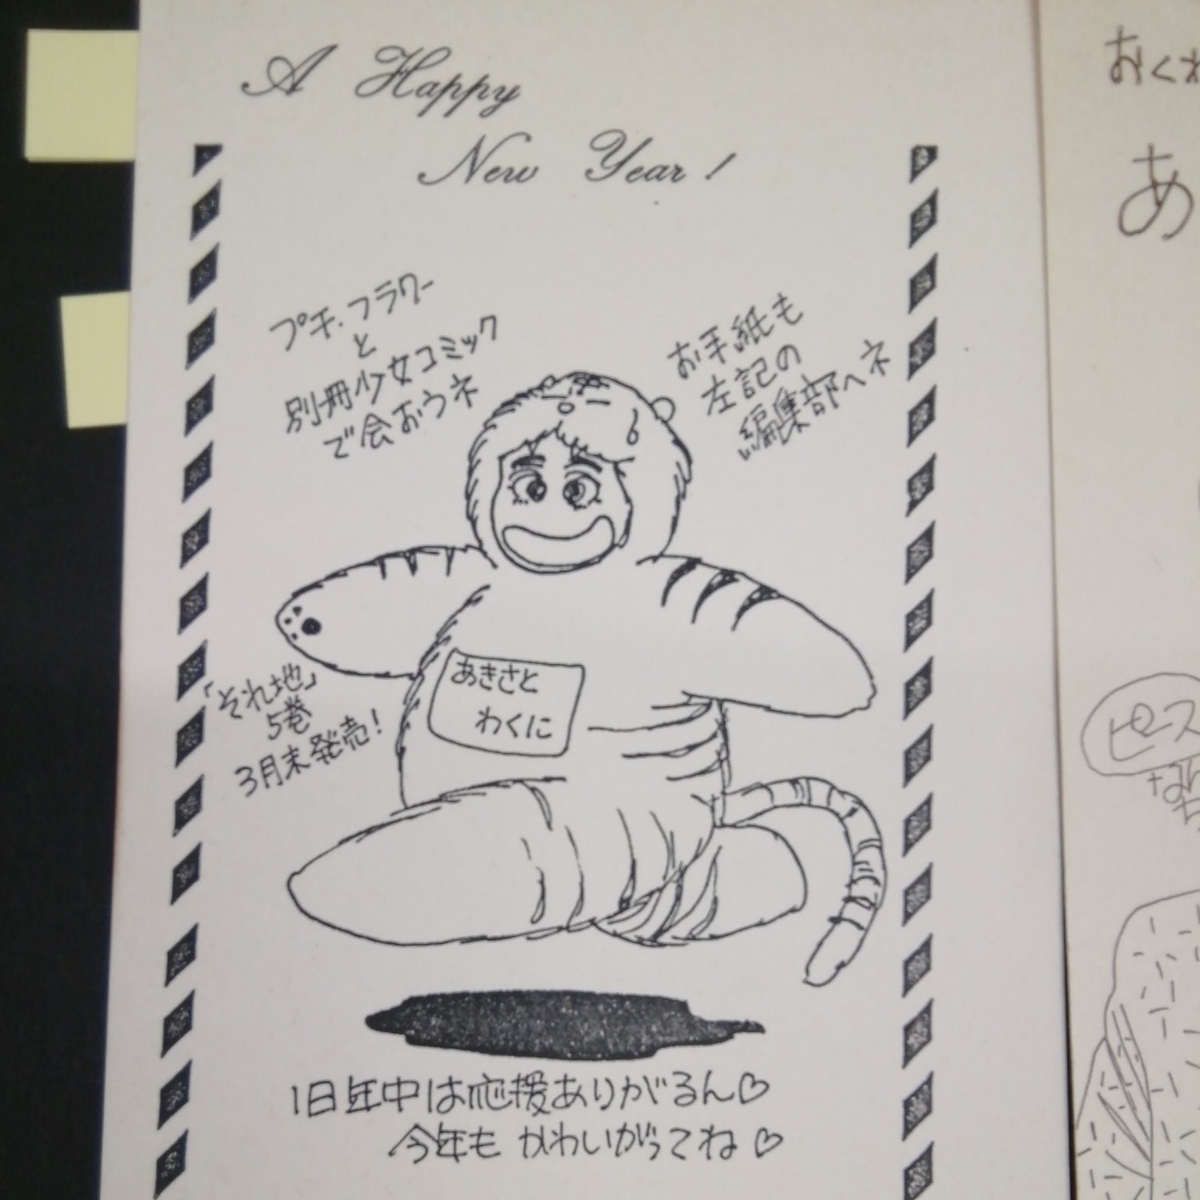 A Happy
New Year!
プチ・フラワー
と
別冊少女コミック
で会おうネ
お手紙も
左記の
編集部へネ
あきさと
わくに
「それ地」
5巻
3月末発売!
1日年中は応援ありがるん♡
今年も かわいがってね♡
おくれ
あ
ピース